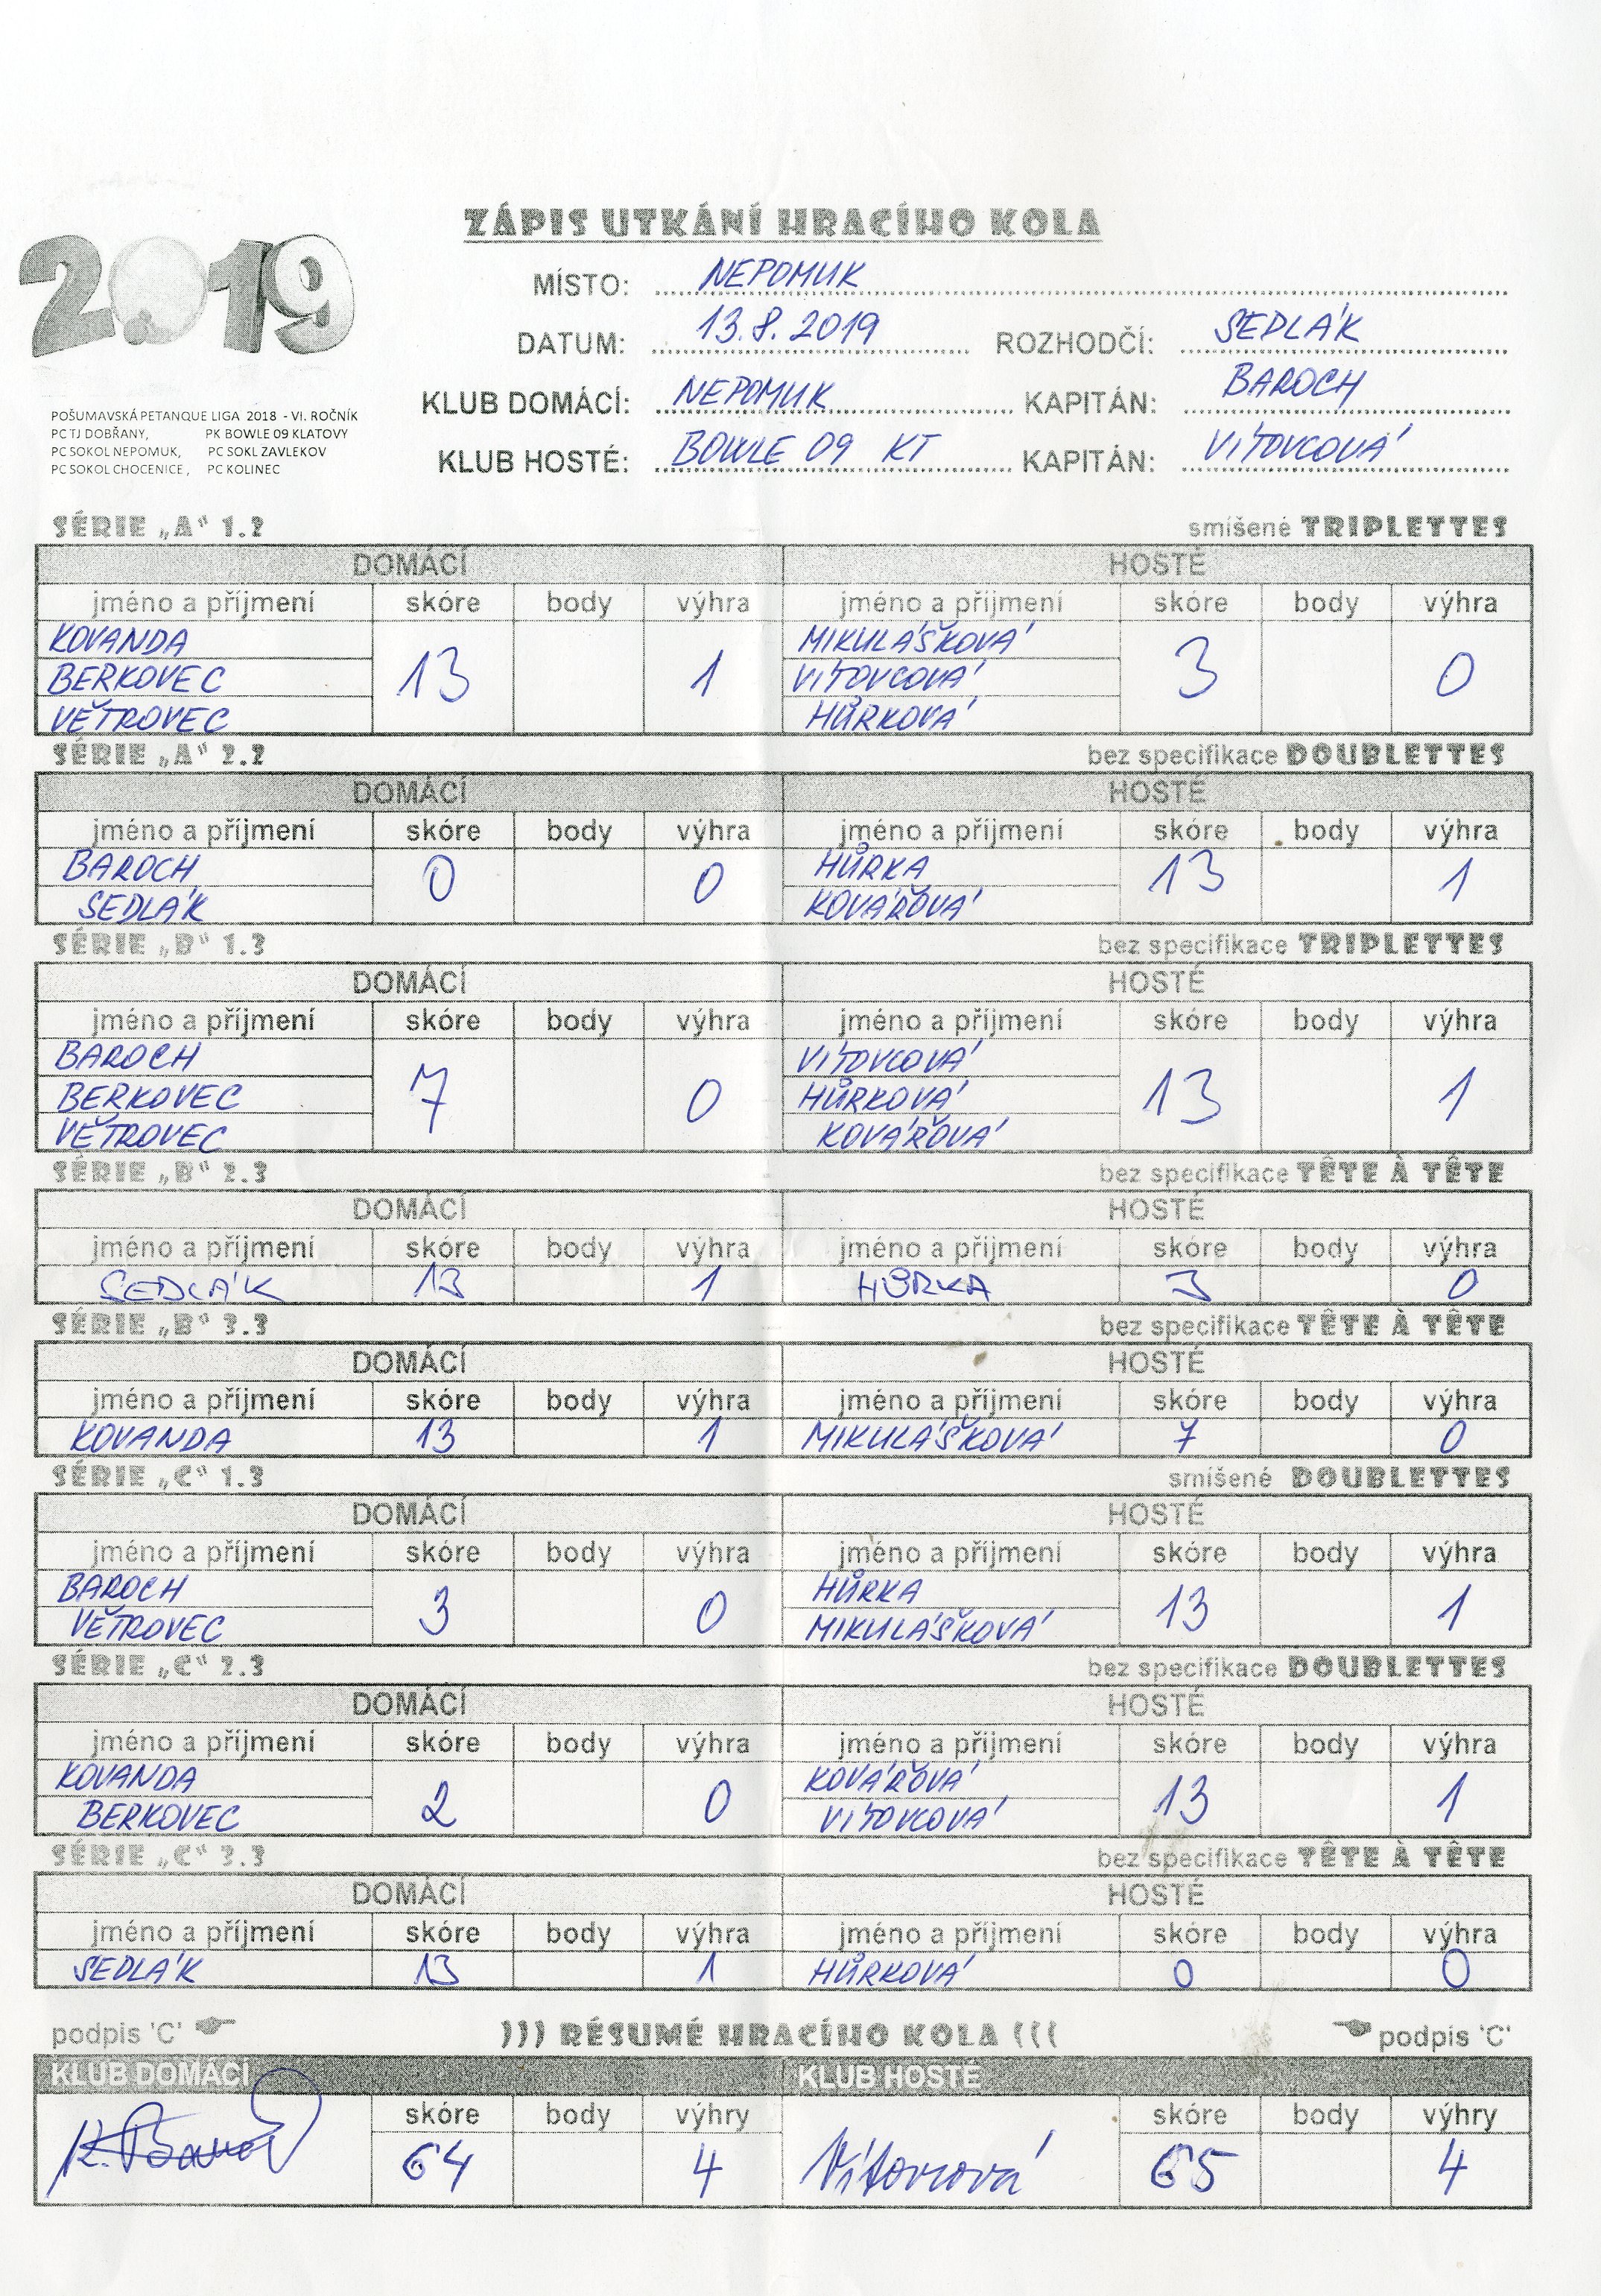 ZÁPIS UTKÁNÍ HRACÍHO KOLA
2019
MÍSTO: NEPOMUK
DATUM: 13.8.2019 ROZHODČÍ: SEDLÁK
KLUB DOMÁCÍ: NEPOMUK KAPITÁN: BAROCH
KLUB HOSTÉ: BOWLE 09 KT KAPITÁN: VÍTOVCOVÁ
POŠUMAVSKÁ PETANQUE LIGA 2018 - VI. ROČNÍK
PC TJ DOBŘANY, PK BOWLE 09 KLATOVY
PC SOKOL NEPOMUK, PC SOKL ZAVLEKOV
PC SOKOL CHOCENICE, PC KOLINEC
SÉRIE „A" 1.2 smíšené TRIPLETTES
DOMÁCÍ HOSTÉ
jméno a příjmení skóre body výhra jméno a příjmení skóre body výhra
KOVANDA 13 1 MIKULÁŠKOVÁ 3 0
BERKOVEC VÍTOVCOVÁ
VĚTROVEC HŮRKOVÁ
SÉRIE „A" 2.2 bez specifikace DOUBLETTES
DOMÁCÍ HOSTÉ
jméno a příjmení skóre body výhra jméno a příjmení skóre body výhra
BAROCH 0 0 HŮRKA 13 1
SEDLÁK KOVÁŘOVÁ
SÉRIE „B" 1.3 bez specifikace TRIPLETTES
DOMÁCÍ HOSTÉ
jméno a příjmení skóre body výhra jméno a příjmení skóre body výhra
BAROCH 7 0 VÍTOVCOVÁ 13 1
BERKOVEC HŮRKOVÁ
VĚTROVEC KOVÁŘOVÁ
SÉRIE „B" 2.3 bez specifikace TÊTE À TÊTE
DOMÁCÍ HOSTÉ
jméno a příjmení skóre body výhra jméno a příjmení skóre body výhra
SEDLÁK 13 1 HŮRKA 3 0
SÉRIE „B" 3.3 bez specifikace TÊTE À TÊTE
DOMÁCÍ HOSTÉ
jméno a příjmení skóre body výhra jméno a příjmení skóre body výhra
KOVANDA 13 1 MIKULÁŠKOVÁ 7 0
SÉRIE „C" 1.3 smíšené DOUBLETTES
DOMÁCÍ HOSTÉ
jméno a příjmení skóre body výhra jméno a příjmení skóre body výhra
BAROCH 3 0 HŮRKA 13 1
VĚTROVEC MIKULÁŠKOVÁ
SÉRIE „C" 2.3 bez specifikace DOUBLETTES
DOMÁCÍ HOSTÉ
jméno a příjmení skóre body výhra jméno a příjmení skóre body výhra
KOVANDA 2 0 KOVÁŘOVÁ 13 1
BERKOVEC VÍTOVCOVÁ
SÉRIE „C" 3.3 bez specifikace TÊTE À TÊTE
DOMÁCÍ HOSTÉ
jméno a příjmení skóre body výhra jméno a příjmení skóre body výhra
SEDLÁK 13 1 HŮRKOVÁ 0 0
podpis 'C' ))) RÉSUMÉ HRACÍHO KOLA ((( podpis 'C'
KLUB DOMÁCÍ KLUB HOSTÉ
skóre body výhry skóre body výhry
64 4 65 4